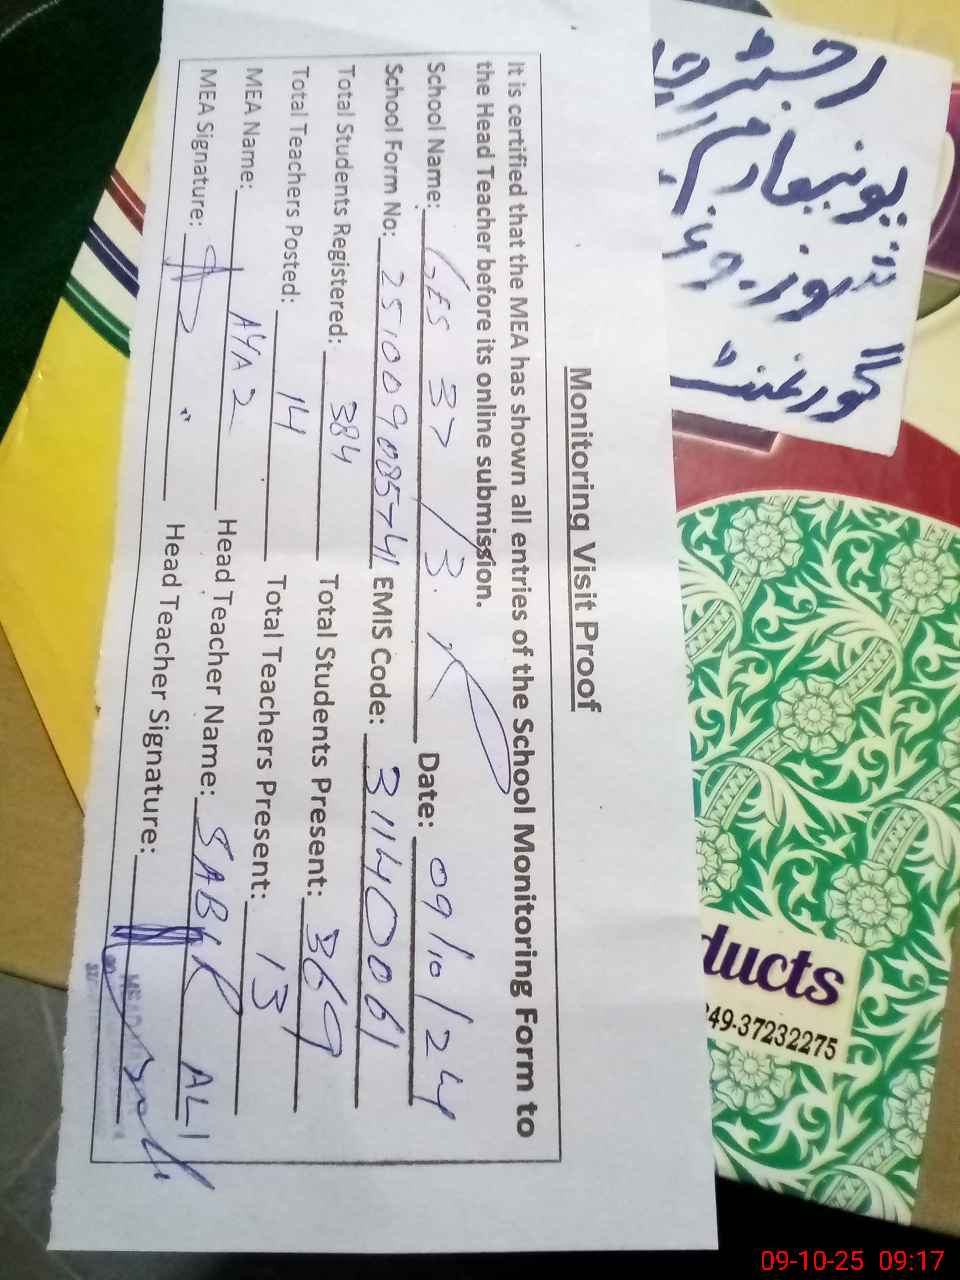 Monitoring Visit Proof
It is certified that the MEA has shown all entries of the School Monitoring Form to
the Head Teacher before its online submission.
School Name: GES 37/3.R Date: 09/10/24
School Form No: 251009085741 EMIS Code: 31140061
Total Students Registered: 384 Total Students Present: 369
Total Teachers Posted: 14 Total Teachers Present: 13
MEA Name: AYA2 Head Teacher Name: SABIR ALI
MEA Signature: Head Teacher Signature:
رجسٹر
یونیفارم
گورنمنٹ
ducts
49-37232275
09-10-25 09:17